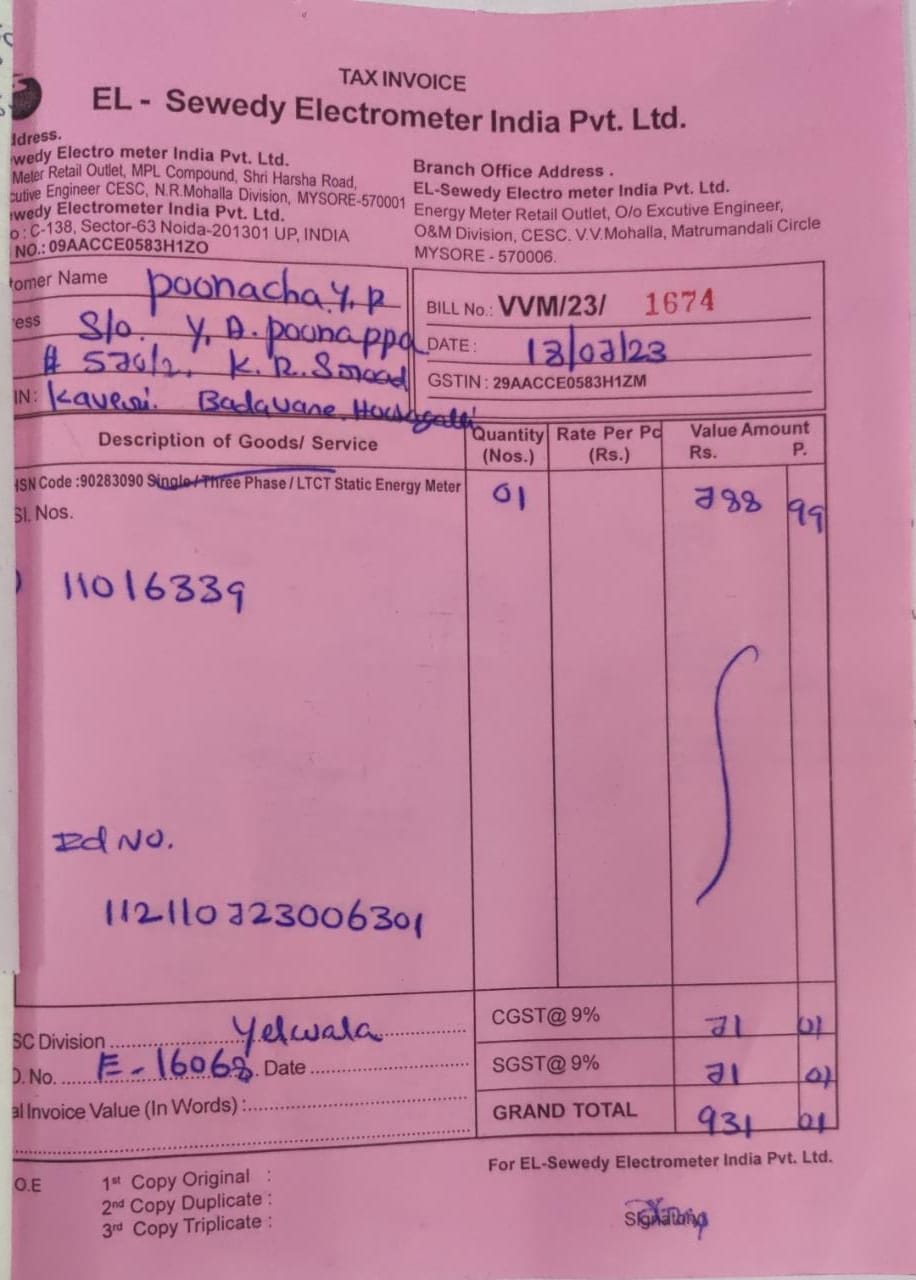 TAX INVOICE
EL - Sewedy Electrometer India Pvt. Ltd.
ldress.
wedy Electro meter India Pvt. Ltd.
Meter Retail Outlet, MPL Compound, Shri Harsha Road,
cutive Engineer CESC, N.R.Mohalla Division, MYSORE-570001
wedy Electrometer India Pvt. Ltd.
o : C-138, Sector-63 Noida-201301 UP, INDIA
NO.: 09AACCE0583H1ZO
Branch Office Address .
EL-Sewedy Electro meter India Pvt. Ltd.
Energy Meter Retail Outlet, O/o Excutive Engineer,
O&M Division, CESC. V.V.Mohalla, Matrumandali Circle
MYSORE - 570006.
tomer Name Poonacha. Y. P
ess S/o. Y. D. Poonappa
K. R. S road
IN: Kaveri. Badavane.
BILL No.: VVM/23/ 1674
DATE : 13/07/23
GSTIN : 29AACCE0583H1ZM
Description of Goods/ Service Quantity (Nos.) Rate Per Pc (Rs.) Value Amount Rs. P.
HSN Code :90283090 Single / Three Phase / LTCT Static Energy Meter 01 788 99
Sl. Nos.
11016339
Id NO.
112110723006301
SC Division Yelwala
O. No. E-16068 Date
al Invoice Value (In Words) :
CGST@ 9% 71 01
SGST@ 9% 71 01
GRAND TOTAL 931 01
For EL-Sewedy Electrometer India Pvt. Ltd.
O.E
1st Copy Original :
2nd Copy Duplicate :
3rd Copy Triplicate :